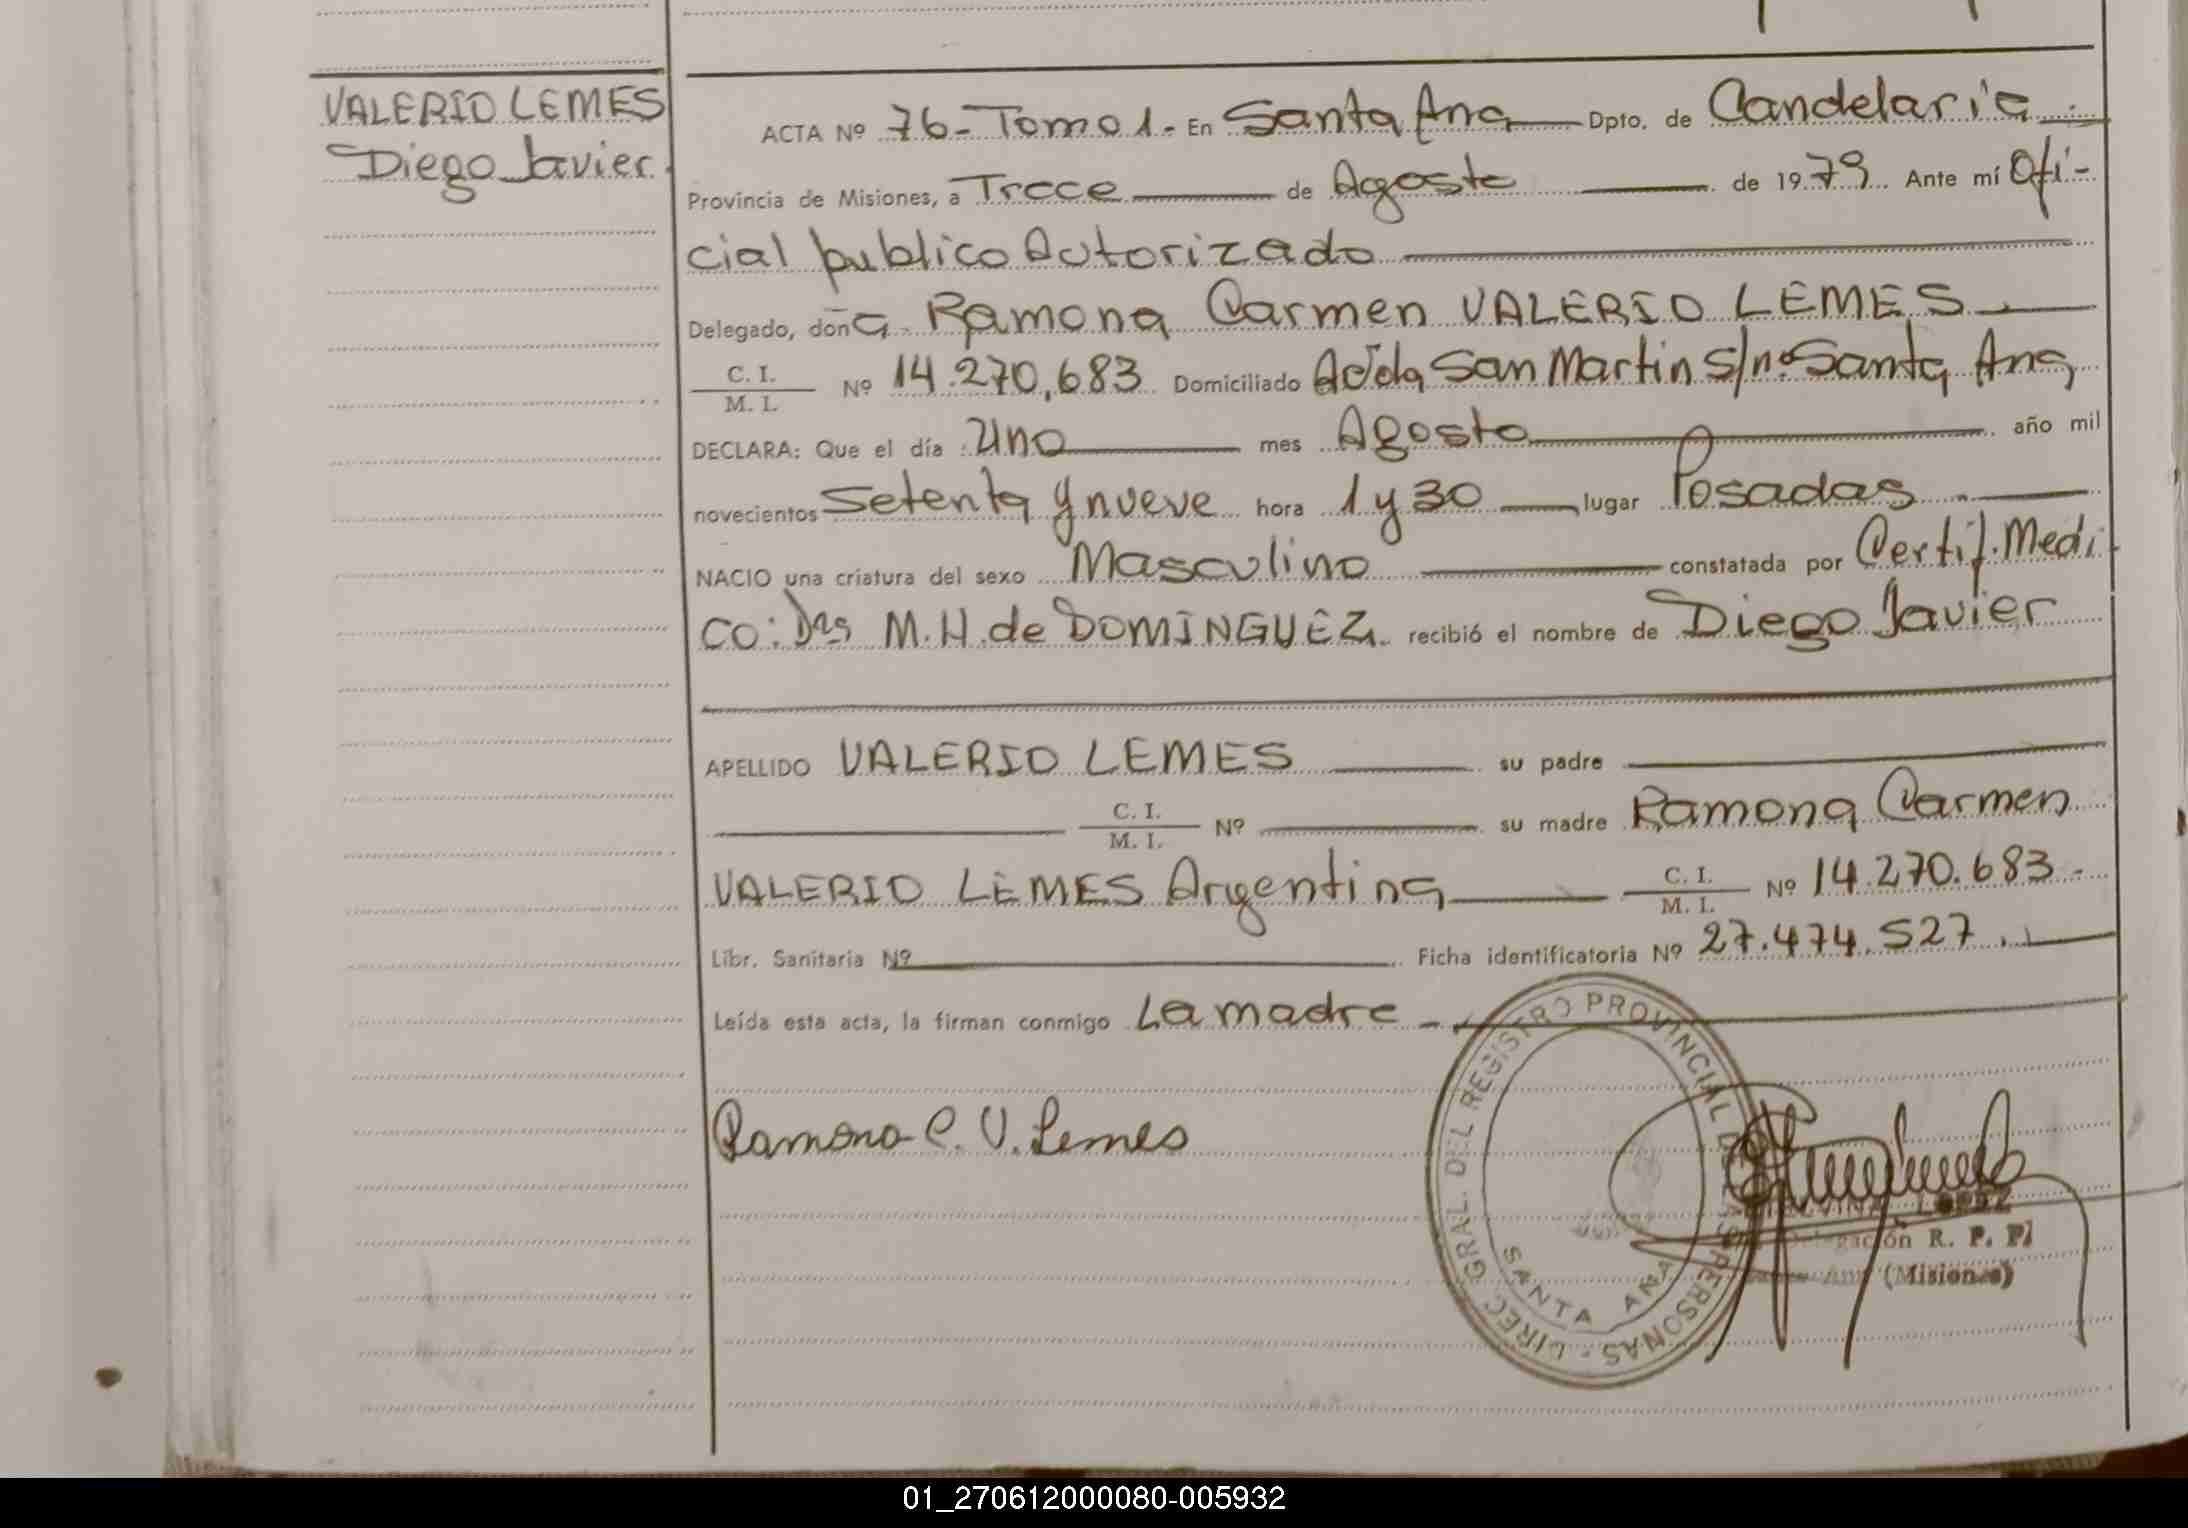 VALERIO LEMES
Diego Javier
ACTA Nº 76-Tomo 1- En Santa Ana Dpto. de Candelaria
Provincia de Misiones, a Trece de Agosto de 1979 Ante mí Ofi-
cial publico Autorizado
Delegado, doña Ramona Carmen VALERIO LEMES
C. I.
M. I. Nº 14.270,683 Domiciliado Avda San Martin S/nº Santa Ana
DECLARA: Que el día Uno mes Agosto año mil
novecientos Setenta y nueve hora 1 y 30 lugar Posadas
NACIO una criatura del sexo Masculino constatada por Certif. Medi
co: Dra M.H. de DOMINGUEZ recibió el nombre de Diego Javier
APELLIDO VALERIO LEMES su padre
C. I.
M. I. Nº su madre Ramona Carmen
VALERIO LEMES Argentina C. I. M. I. Nº 14.270.683-
Libr. Sanitaria Nº Ficha identificatoria Nº 27.474.527
Leída esta acta, la firman conmigo La madre
Ramona C. V. Lemes
DIREC. GRAL. DEL REGISTRO PROVINCIAL DE LAS PERSONAS -
SANTA ANA
LOPEZ
Delegación R. P. P.
Ana (Misiones)
01_270612000080-005932